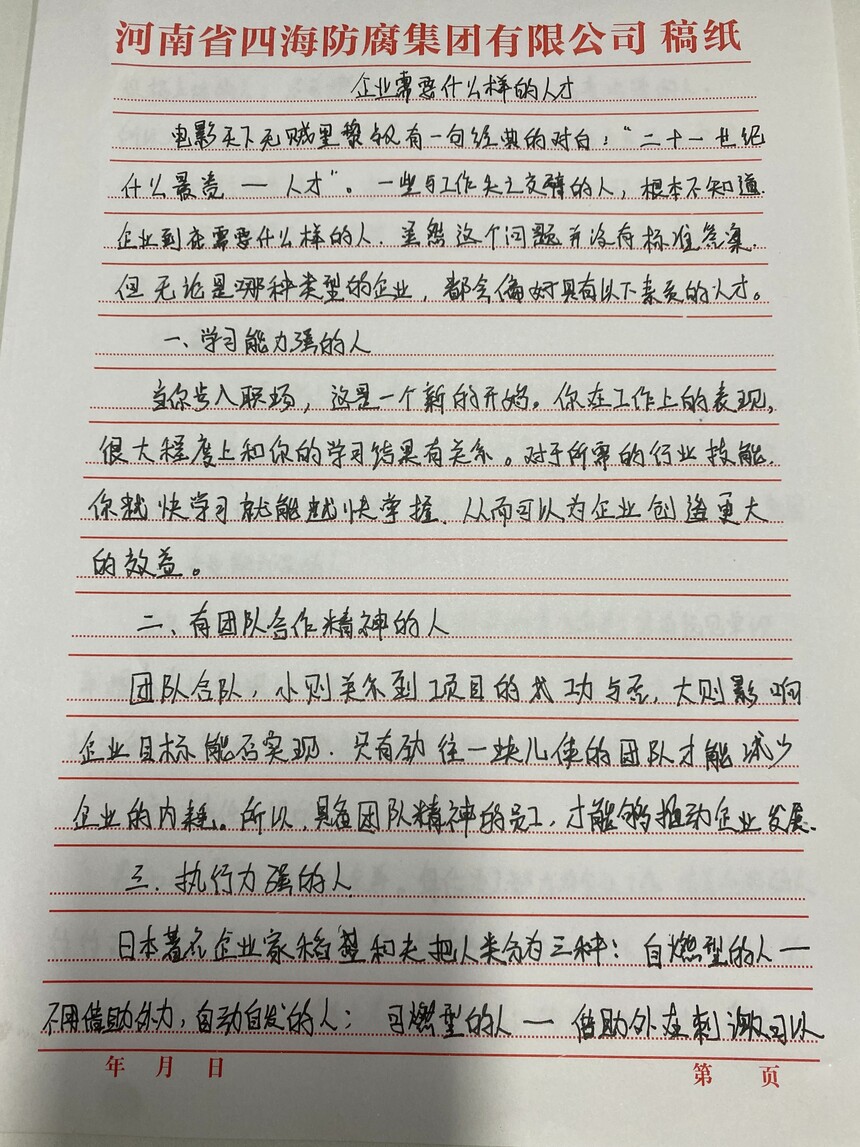 河南省四海防腐集团有限公司 稿纸
企业需要什么样的人才
电影天下无贼里黎叔有一句经典的对白："二十一世纪
什么最贵 — 人才"。一些与工作失之交臂的人，根本不知道
企业到底需要什么样的人．虽然这个问题并没有标准答案．
但无论是哪种类型的企业，都会偏好具有以下素质的人才。
一、学习能力强的人
当你步入职场，这是一个新的开始。你在工作上的表现，
很大程度上和你的学习结果有关系。对于所需的行业技能．
你越快学习就能越快掌握．从而可以为企业创造更大
的效益。
二、有团队合作精神的人
团队合队，小则关系到项目的成功与否，大则影响
企业目标能否实现．只有劲往一块儿使的团队才能减少
企业的内耗。所以，具备团队精神的员工，才能够推动企业发展．
三．执行力强的人
日本著名企业家稻盛和夫把人类分为三种：自燃型的人一
不用借助外力，自动自发的人；可燃型的人一 借助外在刺激可以
年 月 日
第 页